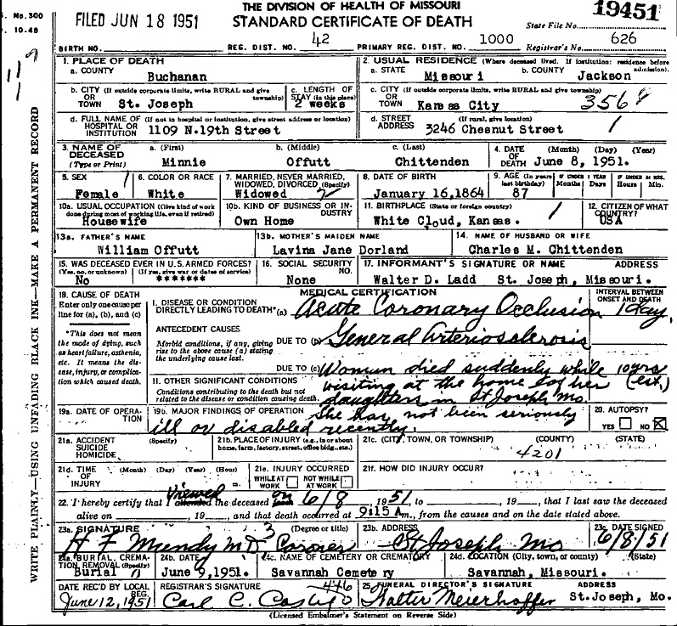 THE DIVISION OF HEALTH OF MISSOURI
STANDARD CERTIFICATE OF DEATH
No. 300
10-48
FILED JUN 18 1951
State File No. 19451
BIRTH NO. REG. DIST. NO. 42 PRIMARY REG. DIST. NO. 1000 Registrar's No. 626
1. PLACE OF DEATH
a. COUNTY Buchanan
2. USUAL RESIDENCE (Where deceased lived. If institution: residence before admission).
a. STATE Missouri b. COUNTY Jackson
b. CITY (If outside corporate limits, write RURAL and give township) OR TOWN St. Joseph
c. LENGTH OF STAY (in this place) 2 weeks
c. CITY (If outside corporate limits, write RURAL and give township) OR TOWN Kansas City 3568
d. FULL NAME OF HOSPITAL OR INSTITUTION (If not in hospital or institution, give street address or location) 1109 N. 19th Street
d. STREET ADDRESS (If rural, give location) 3246 Chesnut Street 1
3. NAME OF DECEASED (Type or Print)
a. (First) Minnie b. (Middle) Offutt c. (Last) Chittenden
4. DATE OF DEATH (Month) (Day) (Year) June 8, 1951.
5. SEX Female 1
6. COLOR OR RACE White
7. MARRIED, NEVER MARRIED, WIDOWED, DIVORCED (Specify) Widowed 2
8. DATE OF BIRTH January 16, 1864
9. AGE (In years last birthday) 87 IF UNDER 1 YEAR Months Days IF UNDER 24 HRS. Hours Min.
10a. USUAL OCCUPATION (Give kind of work done during most of working life, even if retired) Housewife
10b. KIND OF BUSINESS OR INDUSTRY Own Home
11. BIRTHPLACE (State or foreign country) White Cloud, Kansas. 1
12. CITIZEN OF WHAT COUNTRY? USA
13a. FATHER'S NAME William Offutt
13b. MOTHER'S MAIDEN NAME Lavina Jane Dorland
14. NAME OF HUSBAND OR WIFE Charles M. Chittenden
15. WAS DECEASED EVER IN U.S. ARMED FORCES? (Yes, no, or unknown) (If yes, give war or dates of service) No *******
16. SOCIAL SECURITY NO. None
17. INFORMANT'S SIGNATURE OR NAME ADDRESS Walter D. Ladd St. Joseph, Missouri.
18. CAUSE OF DEATH
Enter only one cause per line for (a), (b), and (c)
*This does not mean the mode of dying, such as heart failure, asthenia, etc. It means the disease, injury, or complication which caused death.
MEDICAL CERTIFICATION
INTERVAL BETWEEN ONSET AND DEATH
I. DISEASE OR CONDITION DIRECTLY LEADING TO DEATH* (a) Acute Coronary Occlusion 1 day.
ANTECEDENT CAUSES
Morbid conditions, if any, giving rise to the above cause (a) stating the underlying cause last.
DUE TO (b) General Arteriosclerosis
DUE TO (c) Woman died suddenly while 10 yrs (est.)
II. OTHER SIGNIFICANT CONDITIONS
Conditions contributing to the death but not related to the disease or condition causing death.
visiting at the home of her
daughters in St Joseph Mo.
19a. DATE OF OPERATION
19b. MAJOR FINDINGS OF OPERATION
She has not been seriously
ill or disabled recently.
20. AUTOPSY? YES NO X
21a. ACCIDENT SUICIDE HOMICIDE (Specify)
21b. PLACE OF INJURY (e.g., in or about home, farm, factory, street, office bldg., etc.)
21c. (CITY, TOWN, OR TOWNSHIP) (COUNTY) (STATE)
4201
21d. TIME OF INJURY (Month) (Day) (Year) (Hour)
21e. INJURY OCCURRED WHILE AT WORK NOT WHILE AT WORK
21f. HOW DID INJURY OCCUR?
22. I hereby certify that I attended viewed the deceased from on 6/8 1951 to , 19 , that I last saw the deceased
alive on , 19 , and that death occurred at 9:15 A m., from the causes and on the date stated above.
23a. SIGNATURE (Degree or title) H F Mundy M.D. Coroner 3
23b. ADDRESS St Joseph Mo
23c. DATE SIGNED 6/8/51
24a. BURIAL, CREMATION, REMOVAL (Specify) Burial
24b. DATE June 9, 1951.
24c. NAME OF CEMETERY OR CREMATORY Savannah Cemetery
24d. LOCATION (City, town, or county) (State) Savannah, Missouri.
DATE REC'D BY LOCAL REG. June 12, 1951
REGISTRAR'S SIGNATURE 446
25. FUNERAL DIRECTOR'S SIGNATURE ADDRESS Walter Meierhoffer St. Joseph, Mo.
(Licensed Embalmer's Statement on Reverse Side)
WRITE PLAINLY—USING UNFADING BLACK INK—MAKE A PERMANENT RECORD